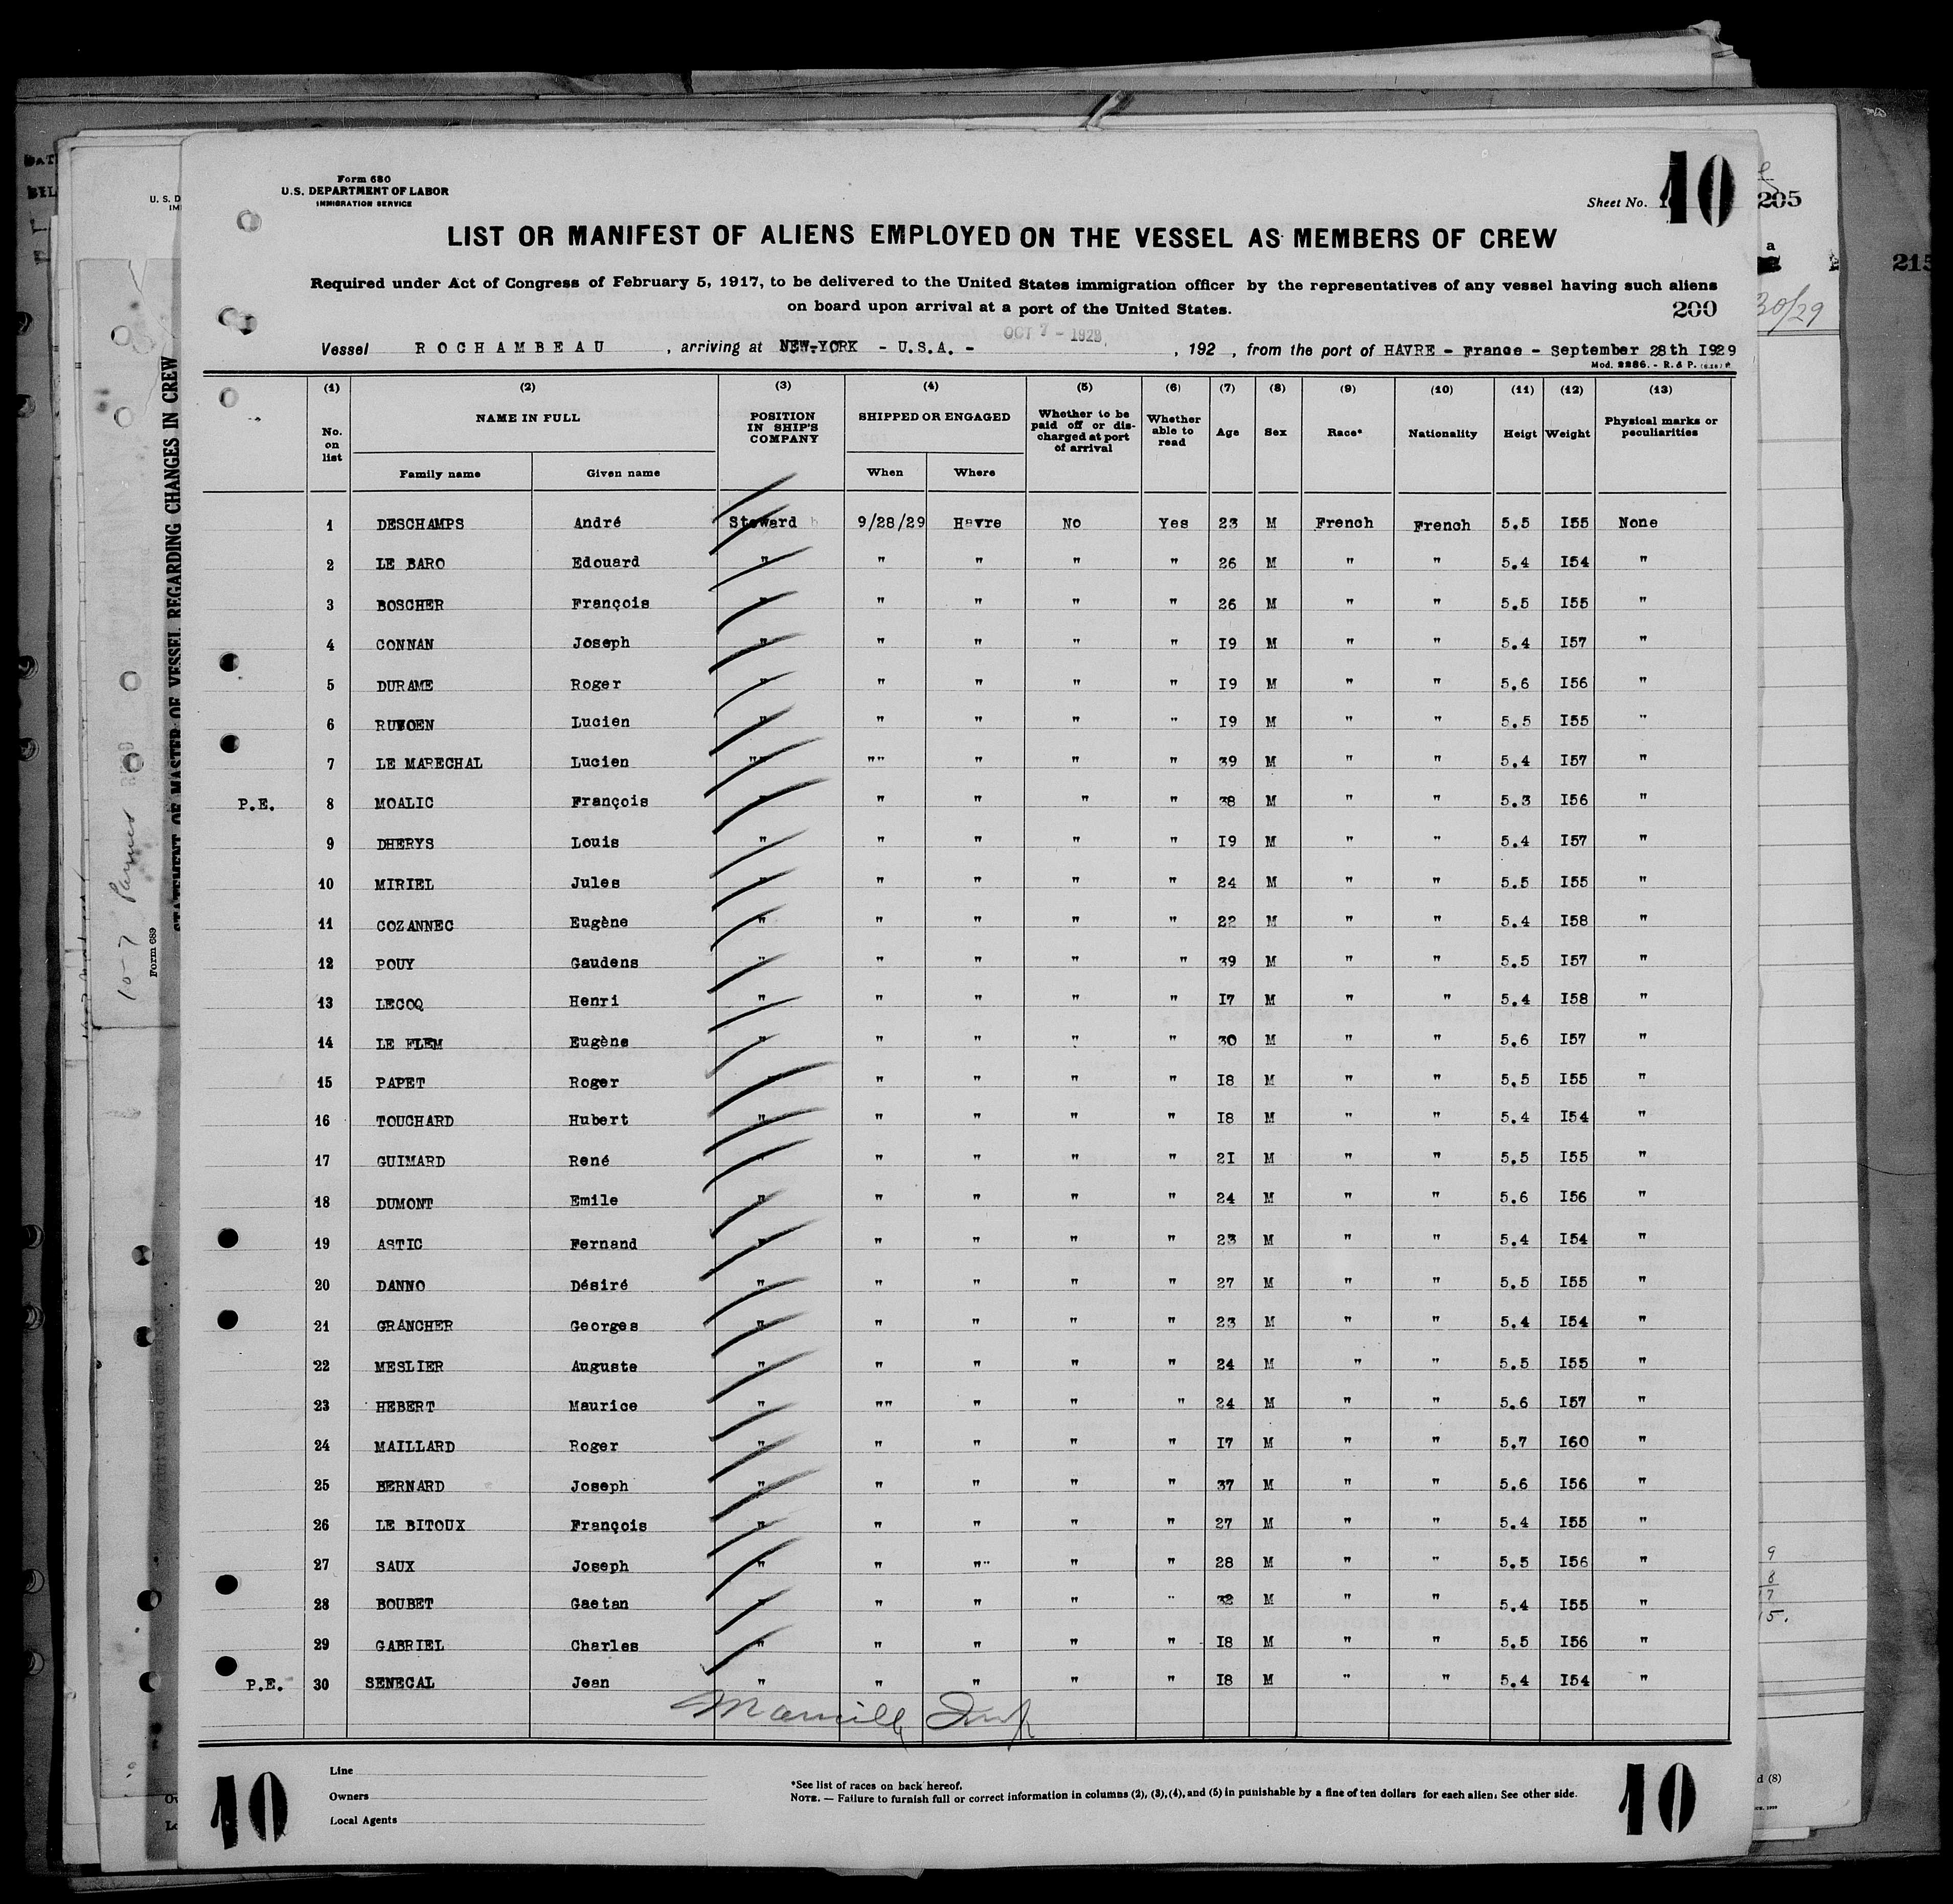 Form 680
U.S. DEPARTMENT OF LABOR
IMMIGRATION SERVICE
Sheet No. 10
205
215
LIST OR MANIFEST OF ALIENS EMPLOYED ON THE VESSEL AS MEMBERS OF CREW
Required under Act of Congress of February 5, 1917, to be delivered to the United States immigration officer by the representatives of any vessel having such aliens
on board upon arrival at a port of the United States.
200
30/29
OCT 7 - 1929
Vessel ROCHAMBEAU , arriving at NEW-YORK - U.S.A. - , 192 , from the port of HAVRE - France - September 28th I929
Mod. 2286. - R. & P.
(1) (2) (3) (4) (5) (6) (7) (8) (9) (10) (11) (12) (13)
No. on list NAME IN FULL POSITION IN SHIP'S COMPANY SHIPPED OR ENGAGED Whether to be paid off or discharged at port of arrival Whether able to read Age Sex Race* Nationality Heigt Weight Physical marks or peculiarities
Family name Given name When Where
1 DESCHAMPS André Steward 9/28/29 Havre No Yes 23 M French French 5.5 I55 None
2 LE BARO Edouard " " " " " 26 M " " 5.4 I54 "
3 BOSCHER François " " " " " 26 M " " 5.5 I55 "
4 CONNAN Joseph " " " " " I9 M " " 5.4 I57 "
5 DURAME Roger " " " " " I9 M " " 5.6 I56 "
6 Lucien " " " " " I9 M " " 5.5 I55 "
7 LE MARECHAL Lucien "" "" " " " 39 M " " 5.4 I57 "
P.E. 8 MOALIC François " " " " " 38 M " " 5.3 I56 "
9 DHERYS Louis " " " " " I9 M " " 5.4 I57 "
10 MIRIEL Jules " " " " " 24 M " " 5.5 I55 "
11 COZANNEC Eugène " " " " " 22 M " " 5.4 I58 "
12 POUY Gaudens " " " " " 39 M " " 5.5 I57 "
13 LECOQ Henri " " " " " I7 M " " 5.4 I58 "
14 LE FLEM Eugène " " " " " 30 M " " 5.6 I57 "
15 PAPET Roger " " " " " I8 M " " 5.5 I55 "
16 TOUCHARD Hubert " " " " " I8 M " " 5.4 I54 "
17 GUIMARD René " " " " " 2I M " " 5.5 I55 "
18 DUMONT Emile " " " " " 24 M " " 5.6 I56 "
19 ASTIC Fernand " " " " " 23 M " " 5.4 I54 "
20 DANNO Désiré " " " " " 27 M " " 5.5 I55 "
21 GRANCHER Georges " " " " " 23 M " " 5.4 I54 "
22 MESLIER Auguste " " " " " 24 M " " 5.5 I55 "
23 HEBERT Maurice " "" " " " 24 M " " 5.6 I57 "
24 MAILLARD Roger " " " " " I7 M " " 5.7 I60 "
25 BERNARD Joseph " " " " " 37 M " " 5.6 I56 "
26 LE BITOUX François " " " " " 27 M " " 5.4 I55 "
27 SAUX Joseph " " "" " " 28 M " " 5.5 I56 "
28 BOUBET Gaetan " " " " " 32 M " " 5.4 I55 "
29 GABRIEL Charles " " " " " I8 M " " 5.5 I56 "
P.E. 30 SENECAL Jean " " " " " I8 M " " 5.4 I54 "
10
Line
Owners
Local Agents
*See list of races on back hereof.
NOTE. — Failure to furnish full or correct information in columns (2), (3), (4), and (5) in punishable by a fine of ten dollars for each alien. See other side.
10
STATEMENT OF MASTER OF VESSEL REGARDING CHANGES IN CREW
Form 689